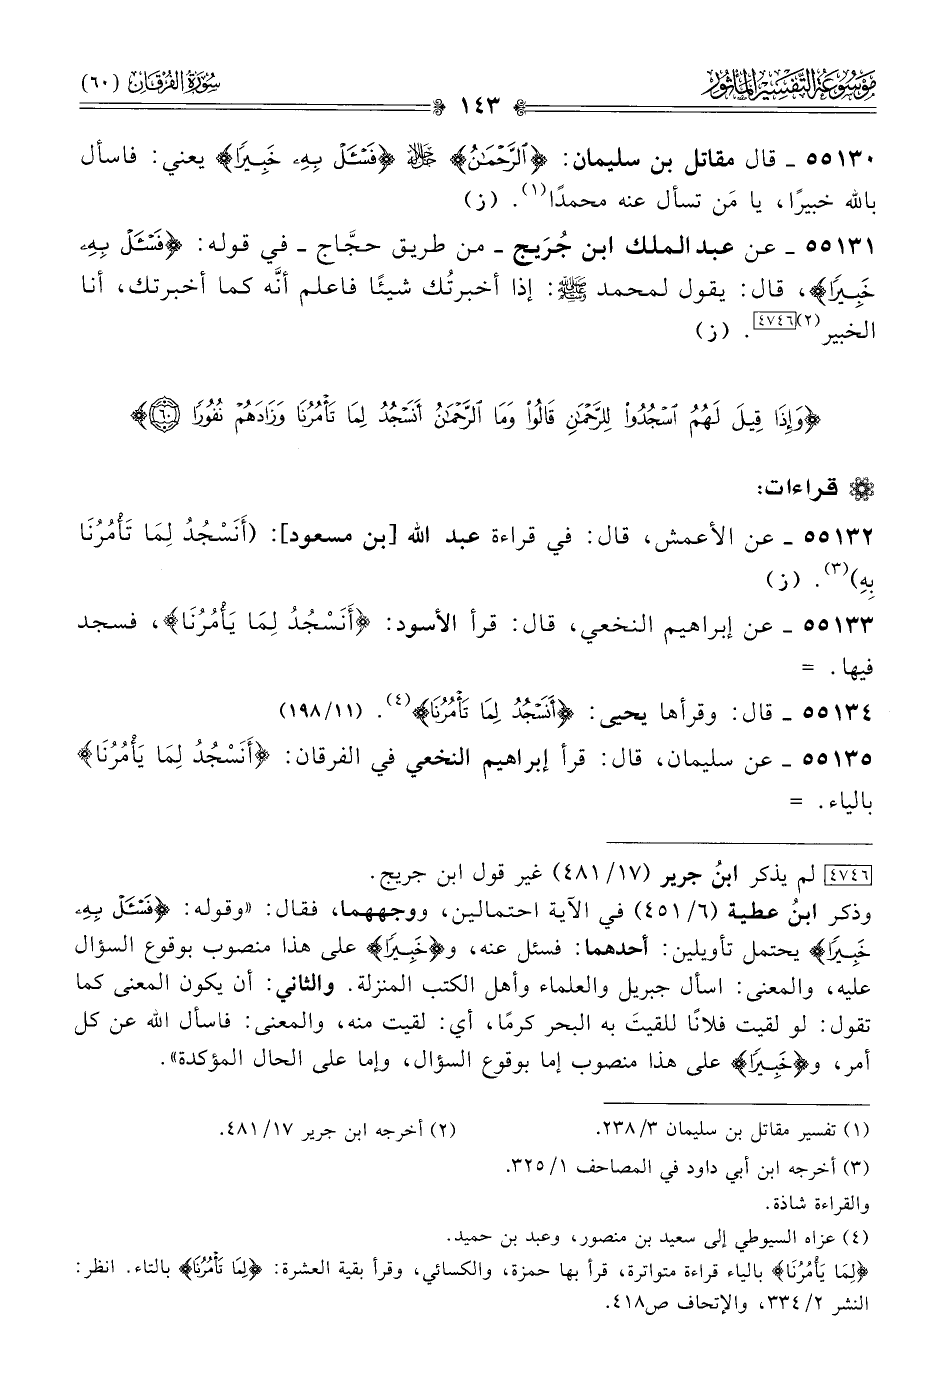 مَوْسُوعَةُ التَّفْسِيرِ المَأْثُورِ
سُورَةُ الفُرْقَانِ (٦٠)
١٤٣
٥٥١٣٠ ـ قال مقاتل بن سليمان: ﴿ٱلرَّحْمَٰنُ﴾ ﷻ ﴿فَسْـَٔلْ بِهِۦ خَبِيرًا﴾ يعني: فاسأل
بالله خبيرًا، يا مَن تسأل عنه محمدًا(١). (ز)
٥٥١٣١ ـ عن عبد الملك ابن جُرَيج ـ من طريق حجَّاج ـ في قوله: ﴿فَسْـَٔلْ بِهِۦ
خَبِيرًا﴾، قال: يقول لمحمد ﷺ: إذا أخبرتُك شيئًا فاعلم أنَّه كما أخبرتك، أنا
الخبير(٢)[٤٧٤٦]. (ز)
﴿وَإِذَا قِيلَ لَهُمُ ٱسْجُدُوا۟ لِلرَّحْمَٰنِ قَالُوا۟ وَمَا ٱلرَّحْمَٰنُ أَنَسْجُدُ لِمَا تَأْمُرُنَا وَزَادَهُمْ نُفُورًا ۝٦٠﴾
قراءات:
٥٥١٣٢ ـ عن الأعمش، قال: في قراءة عبد الله [بن مسعود]: (أَنَسْجُدُ لِمَا تَأْمُرُنَا
بِهِ)(٣). (ز)
٥٥١٣٣ ـ عن إبراهيم النخعي، قال: قرأ الأسود: ﴿أَنَسْجُدُ لِمَا يَأْمُرُنَا﴾، فسجد
فيها. =
٥٥١٣٤ ـ قال: وقرأها يحيى: ﴿أَنَسْجُدُ لِمَا تَأْمُرُنَا﴾(٤). (١٩٨/١١)
٥٥١٣٥ ـ عن سليمان، قال: قرأ إبراهيم النخعي في الفرقان: ﴿أَنَسْجُدُ لِمَا يَأْمُرُنَا﴾
بالياء. =
[٤٧٤٦] لم يذكر ابنُ جرير (٤٨١/١٧) غير قول ابن جريج.
وذكر ابنُ عطية (٤٥١/٦) في الآية احتمالين، ووجههما، فقال: «وقوله: ﴿فَسْـَٔلْ بِهِۦ
خَبِيرًا﴾ يحتمل تأويلين: أحدهما: فسئل عنه، و﴿خَبِيرًا﴾ على هذا منصوب بوقوع السؤال
عليه، والمعنى: اسأل جبريل والعلماء وأهل الكتب المنزلة. والثاني: أن يكون المعنى كما
تقول: لو لقيت فلانًا للقيتَ به البحر كرمًا، أي: لقيت منه، والمعنى: فاسأل الله عن كل
أمر، و﴿خَبِيرًا﴾ على هذا منصوب إما بوقوع السؤال، وإما على الحال المؤكدة».
(١) تفسير مقاتل بن سليمان ٢٣٨/٣.
(٢) أخرجه ابن جرير ٤٨١/١٧.
(٣) أخرجه ابن أبي داود في المصاحف ٣٢٥/١.
والقراءة شاذة.
(٤) عزاه السيوطي إلى سعيد بن منصور، وعبد بن حميد.
﴿لِمَا يَأْمُرُنَا﴾ بالياء قراءة متواترة، قرأ بها حمزة، والكسائي، وقرأ بقية العشرة: ﴿لِمَا تَأْمُرُنَا﴾ بالتاء. انظر:
النشر ٣٣٤/٢، والإتحاف ص٤١٨.